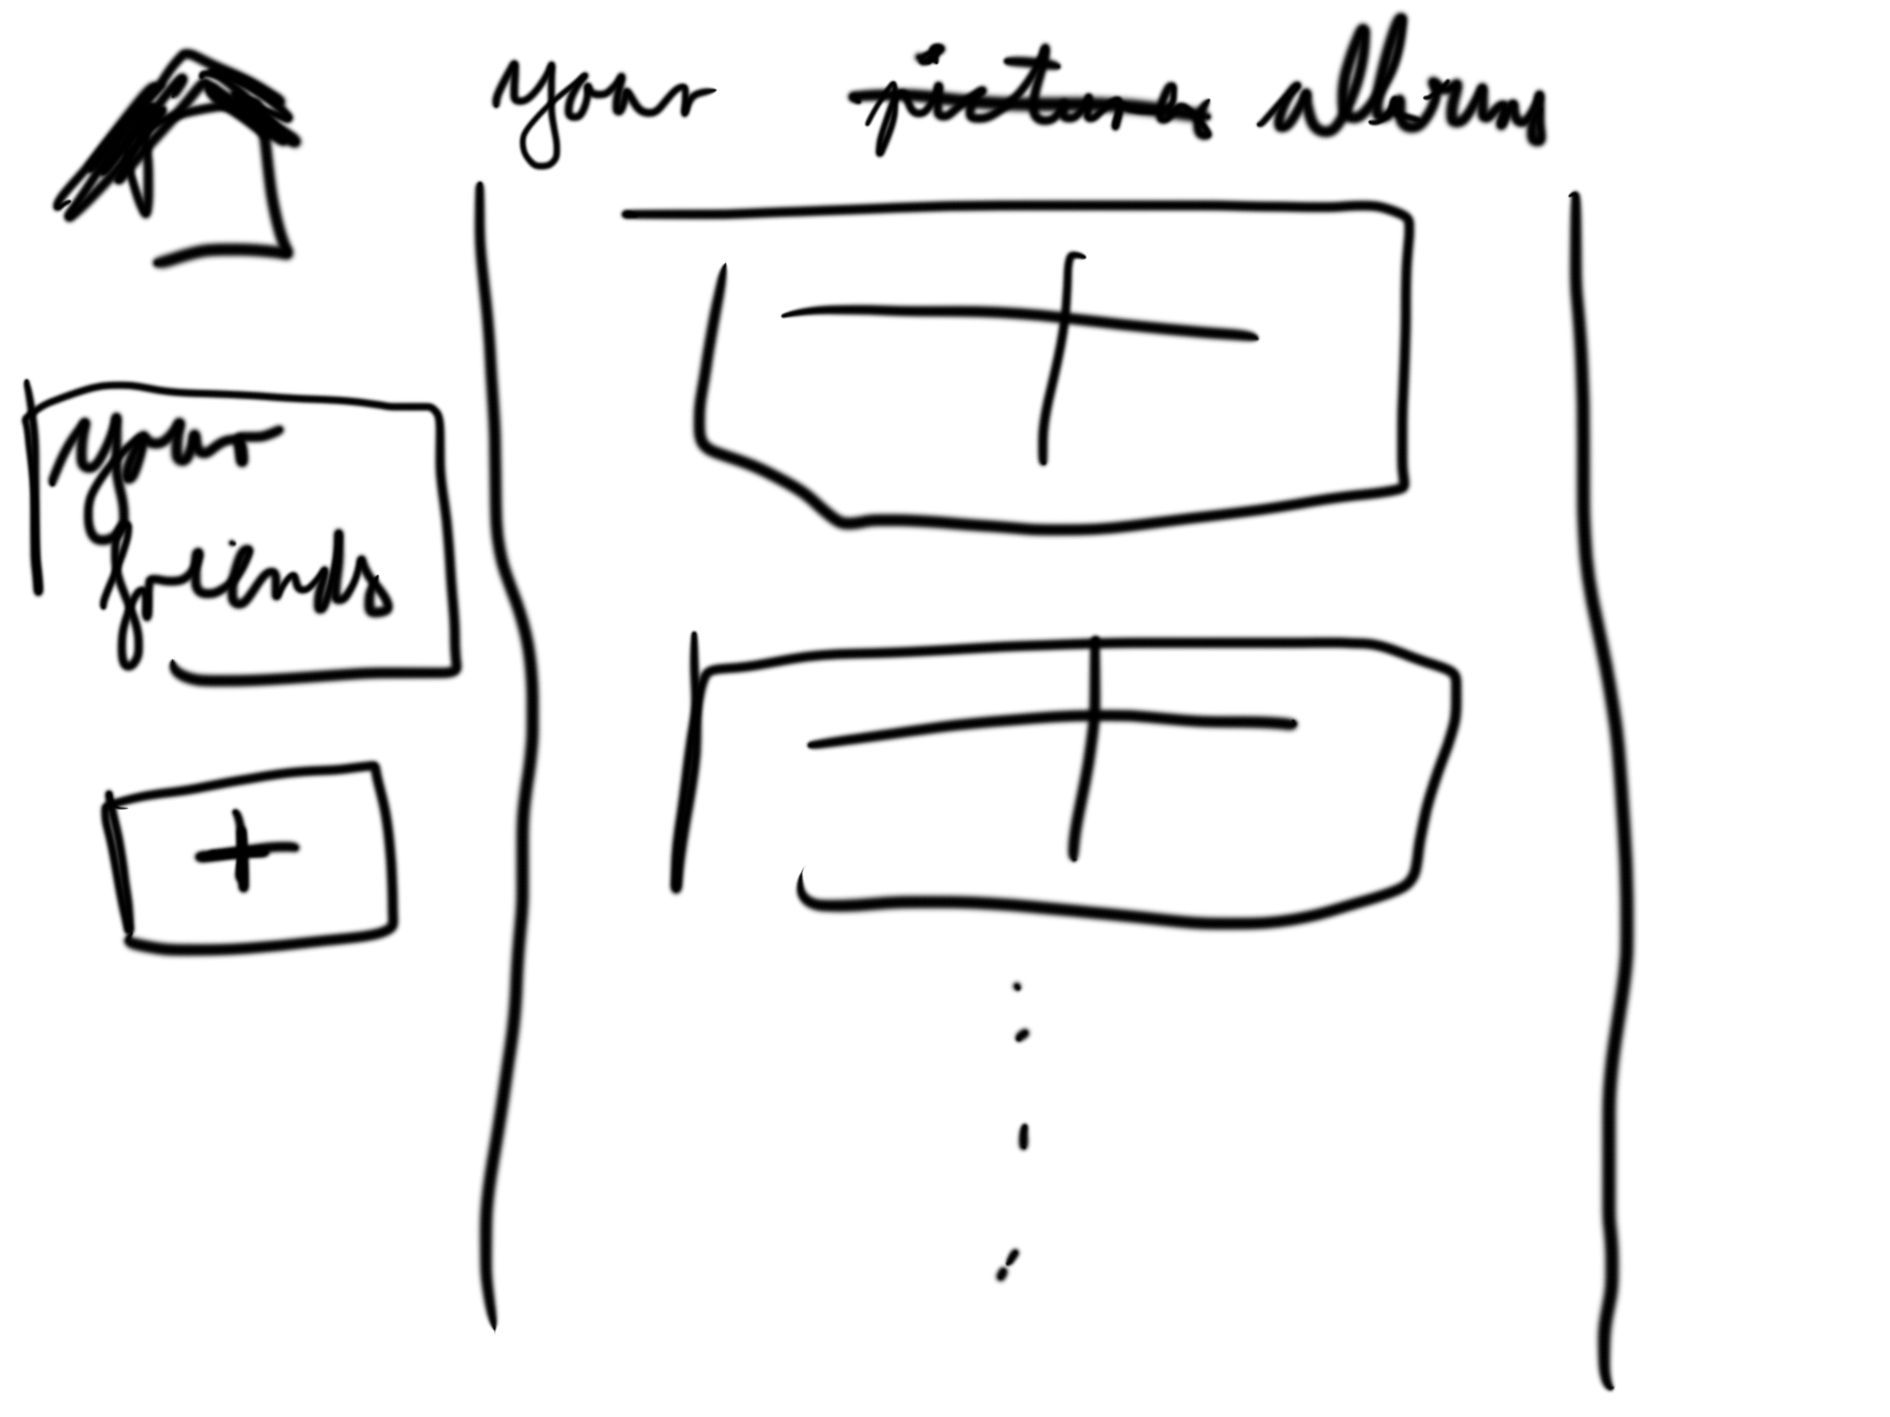 your pictures album
your
friends
+